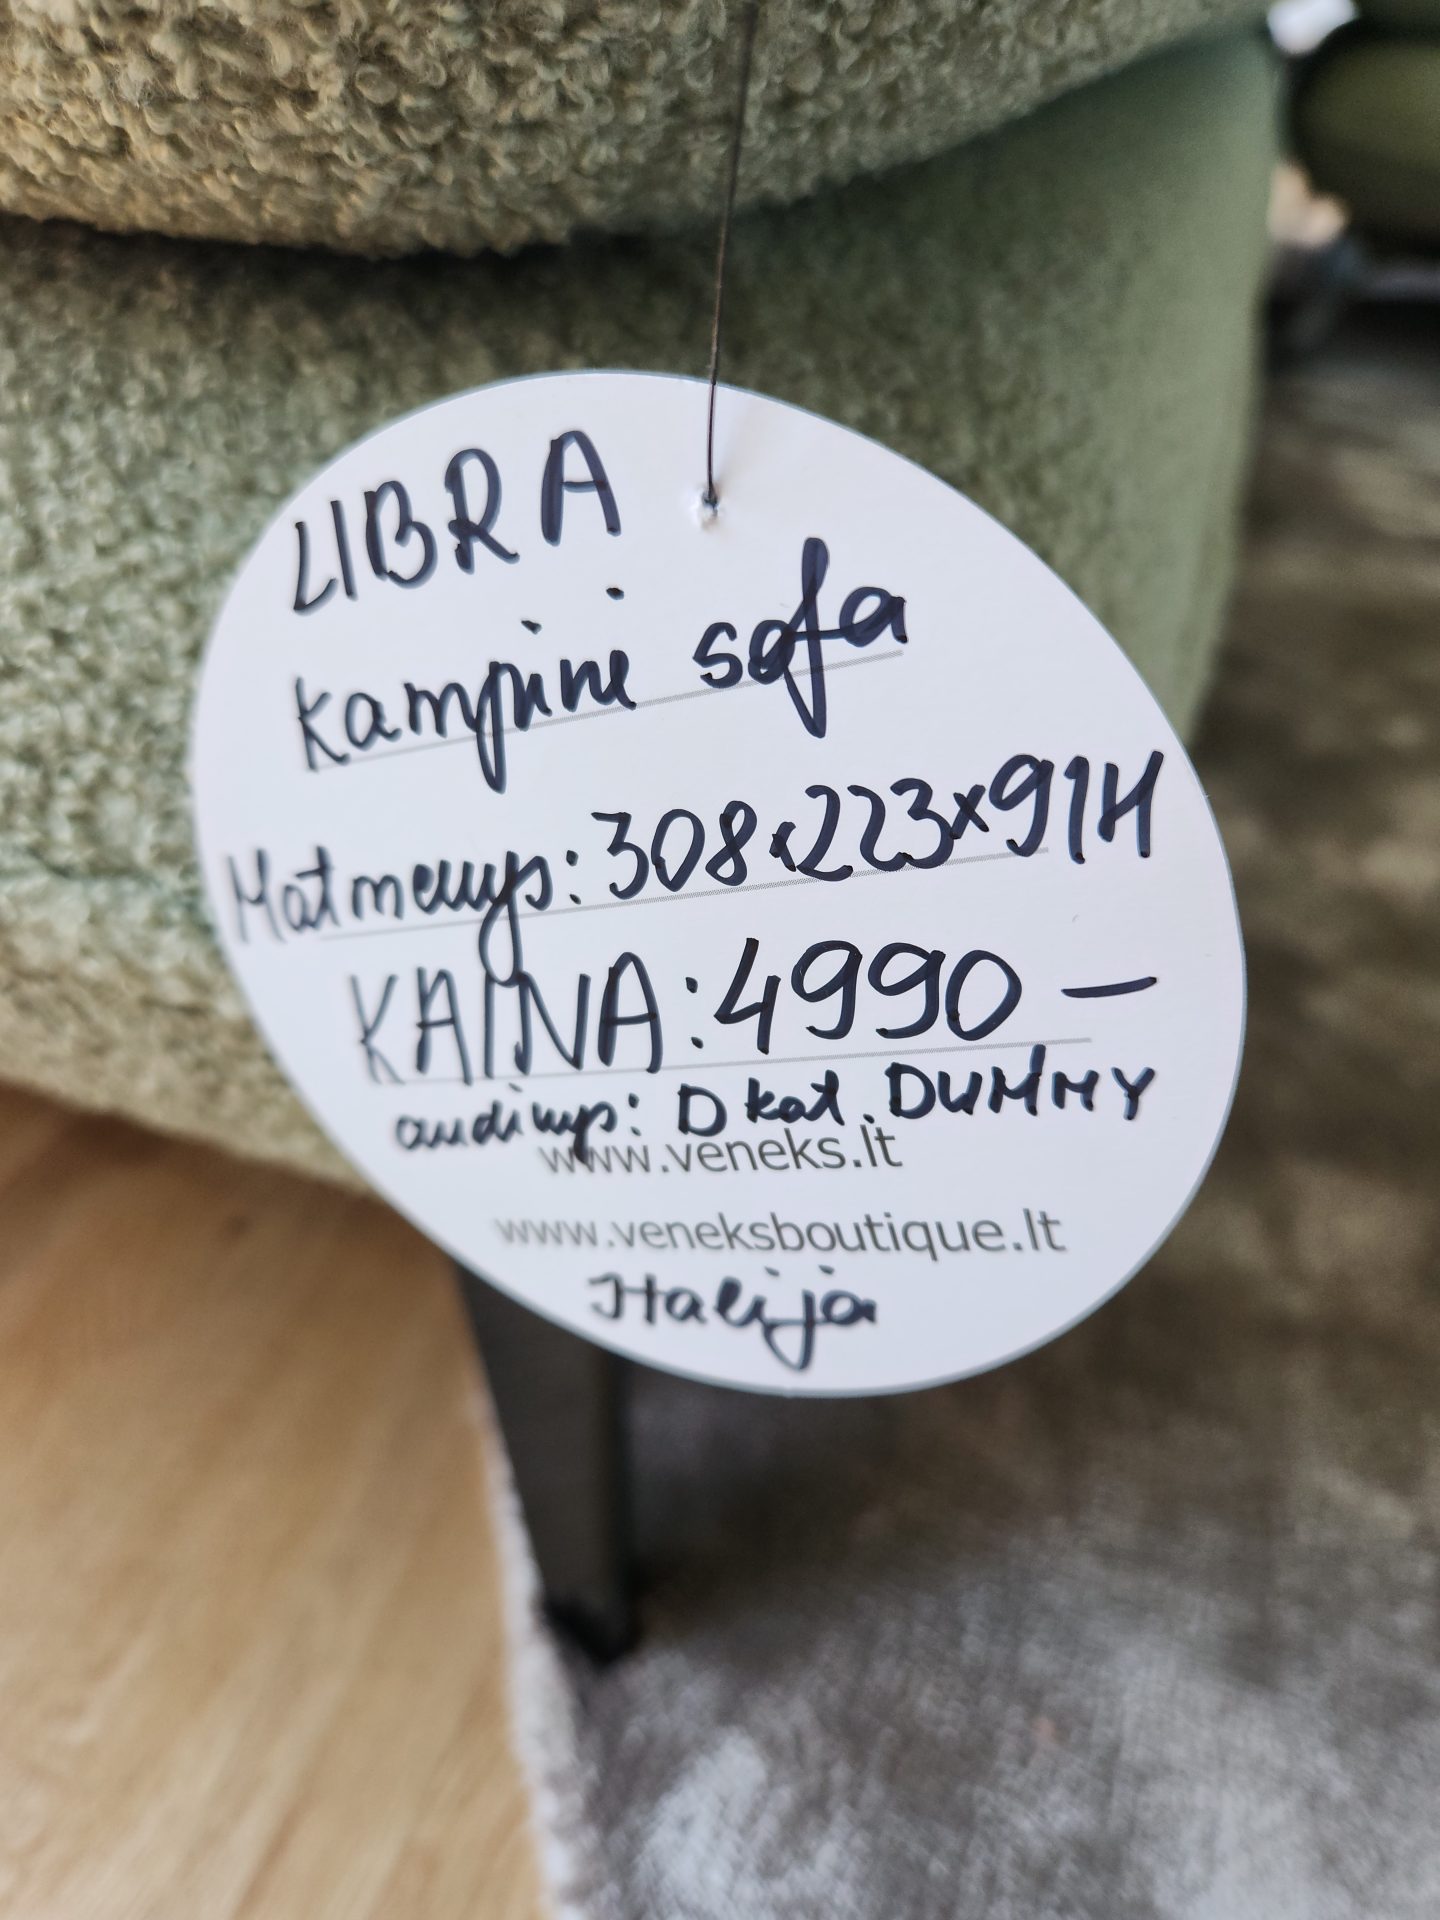 LIBRA
Kampinė sofa
Matmenys: 308x223x91H
KAINA: 4990 —
audinys: D kat. DUMMY
www.veneks.lt
www.veneksboutique.lt
Italija